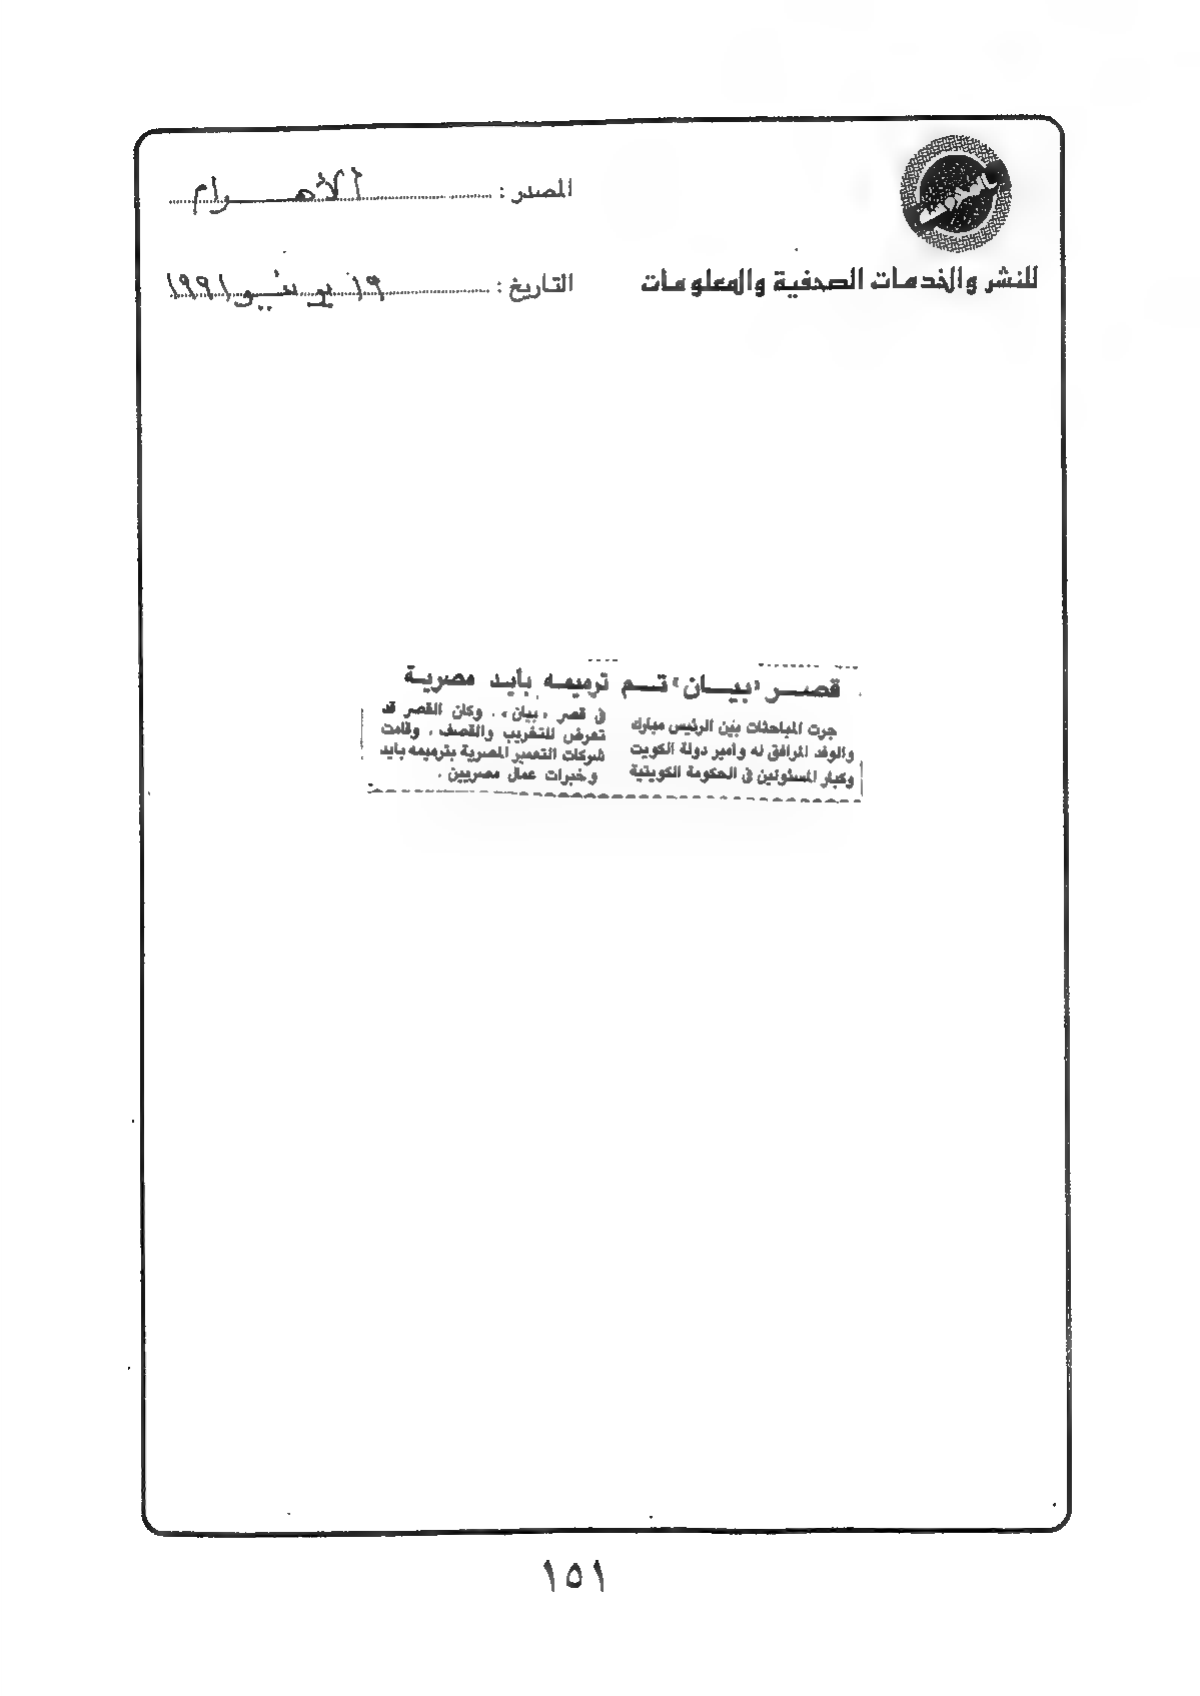 المصدر : الأهرام
للنشر والخدمات الصحفية والمعلومات
التاريخ : ١٩ يونيو ١٩٩١
قصر «بيان» تم ترميمه بايد مصرية
جرت المباحثات بين الرئيس مبارك
والوفد المرافق له وامير دولة الكويت
وكبار المسئولين فى الحكومة الكويتية
فى قصر «بيان» . وكان القصر قد
تعرض للتخريب والقصف ، وقامت
شركات التعمير المصرية بترميمه بايد
وخبرات عمال مصريين .
١٥١